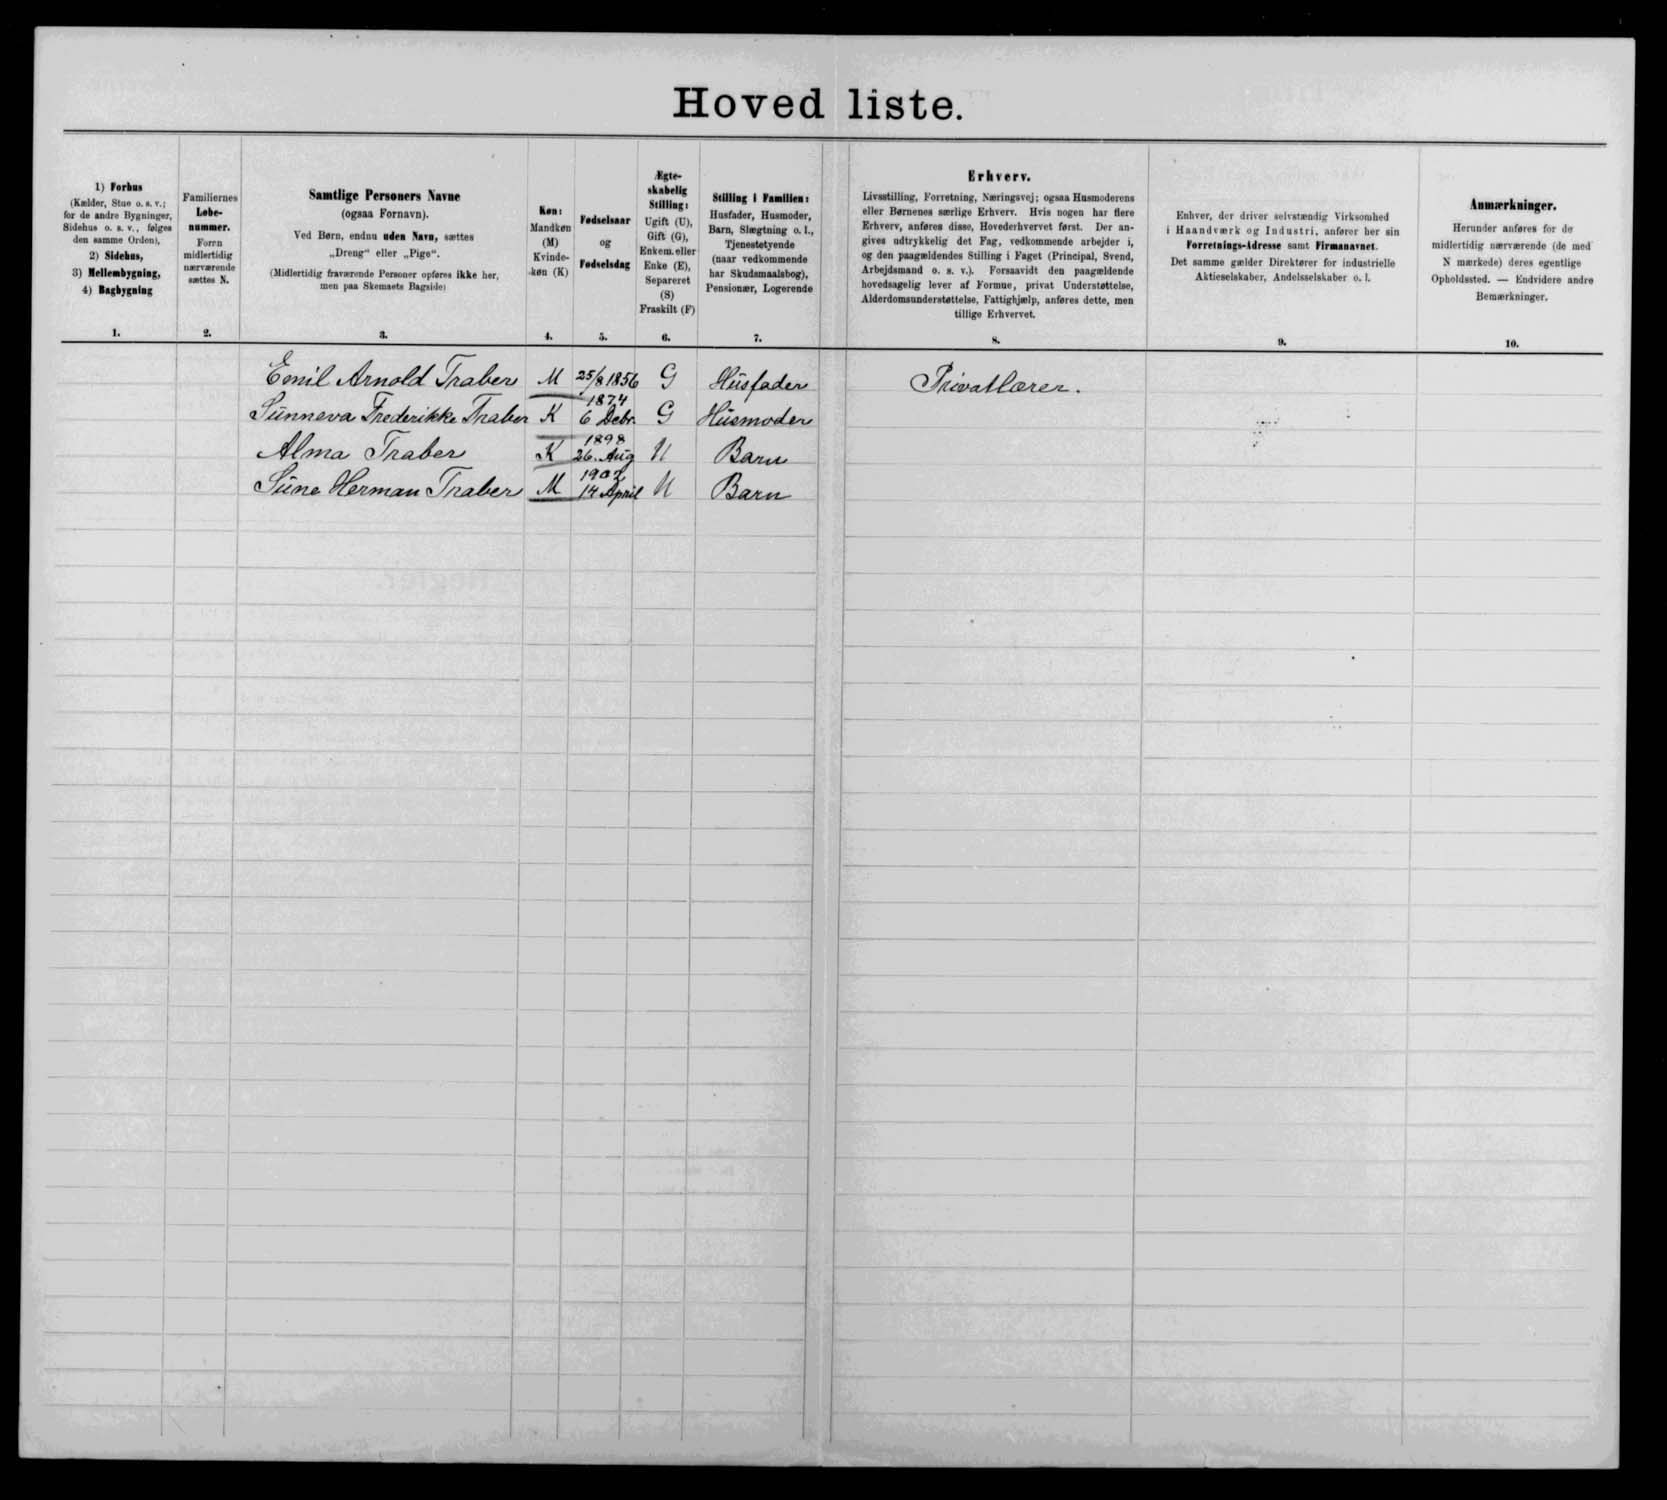 Hoved liste.
1) Forhus
(Kælder, Stue o. s. v.;
for de andre Bygninger,
Sidehus o. s. v., følges
den samme Orden),
2) Sidehus,
3) Mellembygning,
4) Bagbygning
1.
Familiernes
Løbe-
nummer.
Forrn
midlertidig
nærværende
sættes N.
2.
Samtlige Personers Navne
(ogsaa Fornavn).
Ved Børn, endnu uden Navn, sættes
„Dreng“ eller „Pige“.
(Midlertidig fraværende Personer opføres ikke her,
men paa Skemaets Bagside)
3.
Køn:
Mandkøn
(M)
Kvinde-
køn (K)
4.
Fødselsaar
og
Fødselsdag
5.
Ægte-
skabelig
Stilling:
Ugift (U),
Gift (G),
Enkem. eller
Enke (E),
Separeret
(S)
Fraskilt (F)
6.
Stilling i Familien:
Husfader, Husmoder,
Barn, Slægtning o. l.,
Tjenestetyende
(naar vedkommende
har Skudsmaalsbog),
Pensionær, Logerende
7.
Erhverv.
Livsstilling, Forretning, Næringsvej; ogsaa Husmoderens
eller Børnenes særlige Erhverv. Hvis nogen har flere
Erhverv, anføres disse, Hovederhvervet først. Der an-
gives udtrykkelig det Fag, vedkommende arbejder i,
og den paagældendes Stilling i Faget (Principal, Svend,
Arbejdsmand o. s. v.). Forsaavidt den paagældende
hovedsagelig lever af Formue, privat Understøttelse,
Alderdomsunderstøttelse, Fattighjælp, anføres dette, men
tillige Erhvervet.
8.
Enhver, der driver selvstændig Virksomhed
i Haandværk og Industri, anfører her sin
Forretnings-Adresse samt Firmanavnet.
Det samme gælder Direktører for industrielle
Aktieselskaber, Andelsselskaber o. l.
9.
Anmærkninger.
Herunder anføres for de
midlertidig nærværende (de med
N mærkede) deres egentlige
Opholdssted. — Endvidere andre
Bemærkninger.
10.
Emil Arnold Traber M 25/8 1856 G Husfader Privatlærer.
1874
Sunneva Frederikke Traber K 6 Debr. G Husmoder
1898
Alma Traber K 26. Aug U Barn
1902
Sune Herman Traber M 14 April U Barn